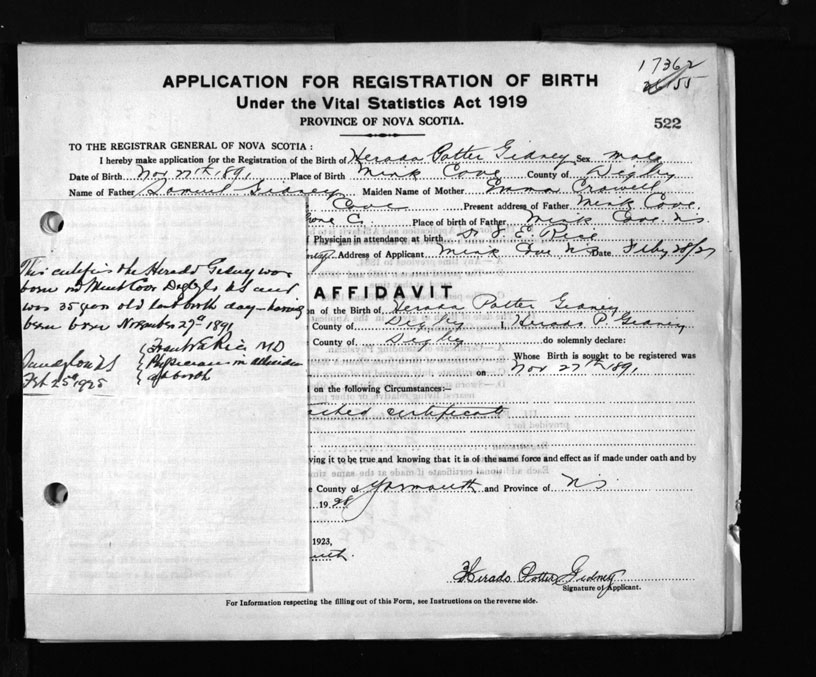 17362
26155
APPLICATION FOR REGISTRATION OF BIRTH
Under the Vital Statistics Act 1919
PROVINCE OF NOVA SCOTIA.
522
TO THE REGISTRAR GENERAL OF NOVA SCOTIA :
I hereby make application for the Registration of the Birth of Herado Potter Gidney Sex male
Date of Birth Nov 27th 1891 Place of Birth Mink Cove County of Digby
Name of Father Samuel Gidney Maiden Name of Mother Emma Crowell
Cove Present address of Father Mink Cove.
Place of birth of Father Mink Cove. NS
f Physician in attendance at birth Dr F. E. Rice
Address of Applicant Mink Cove NS Date Feby 28/27
This certifies that Herado Gidney was
born at Mink Cove Digby Co NS and
was 35 years old last birth day - having
been born November 27th 1891
Frank E Rice MD
Physician in attendance
at birth
Sandy Cove NS
Feb 25th 1928
AFFIDAVIT
on of the Birth of Herado Potter Gidney
County of Digby I, Herado P Gidney
County of Digby do solemnly declare:
Whose Birth is sought to be registered was
on Nov 27th 1891
d on the following Circumstances:—
attached certificate
ving it to be true and knowing that it is of the same force and effect as if made under oath and by
e County of Yarmouth and Province of NS
1928
1923,
Herado Potter Gidney
Signature of Applicant.
For Information respecting the filling out of this Form, see Instructions on the reverse side.